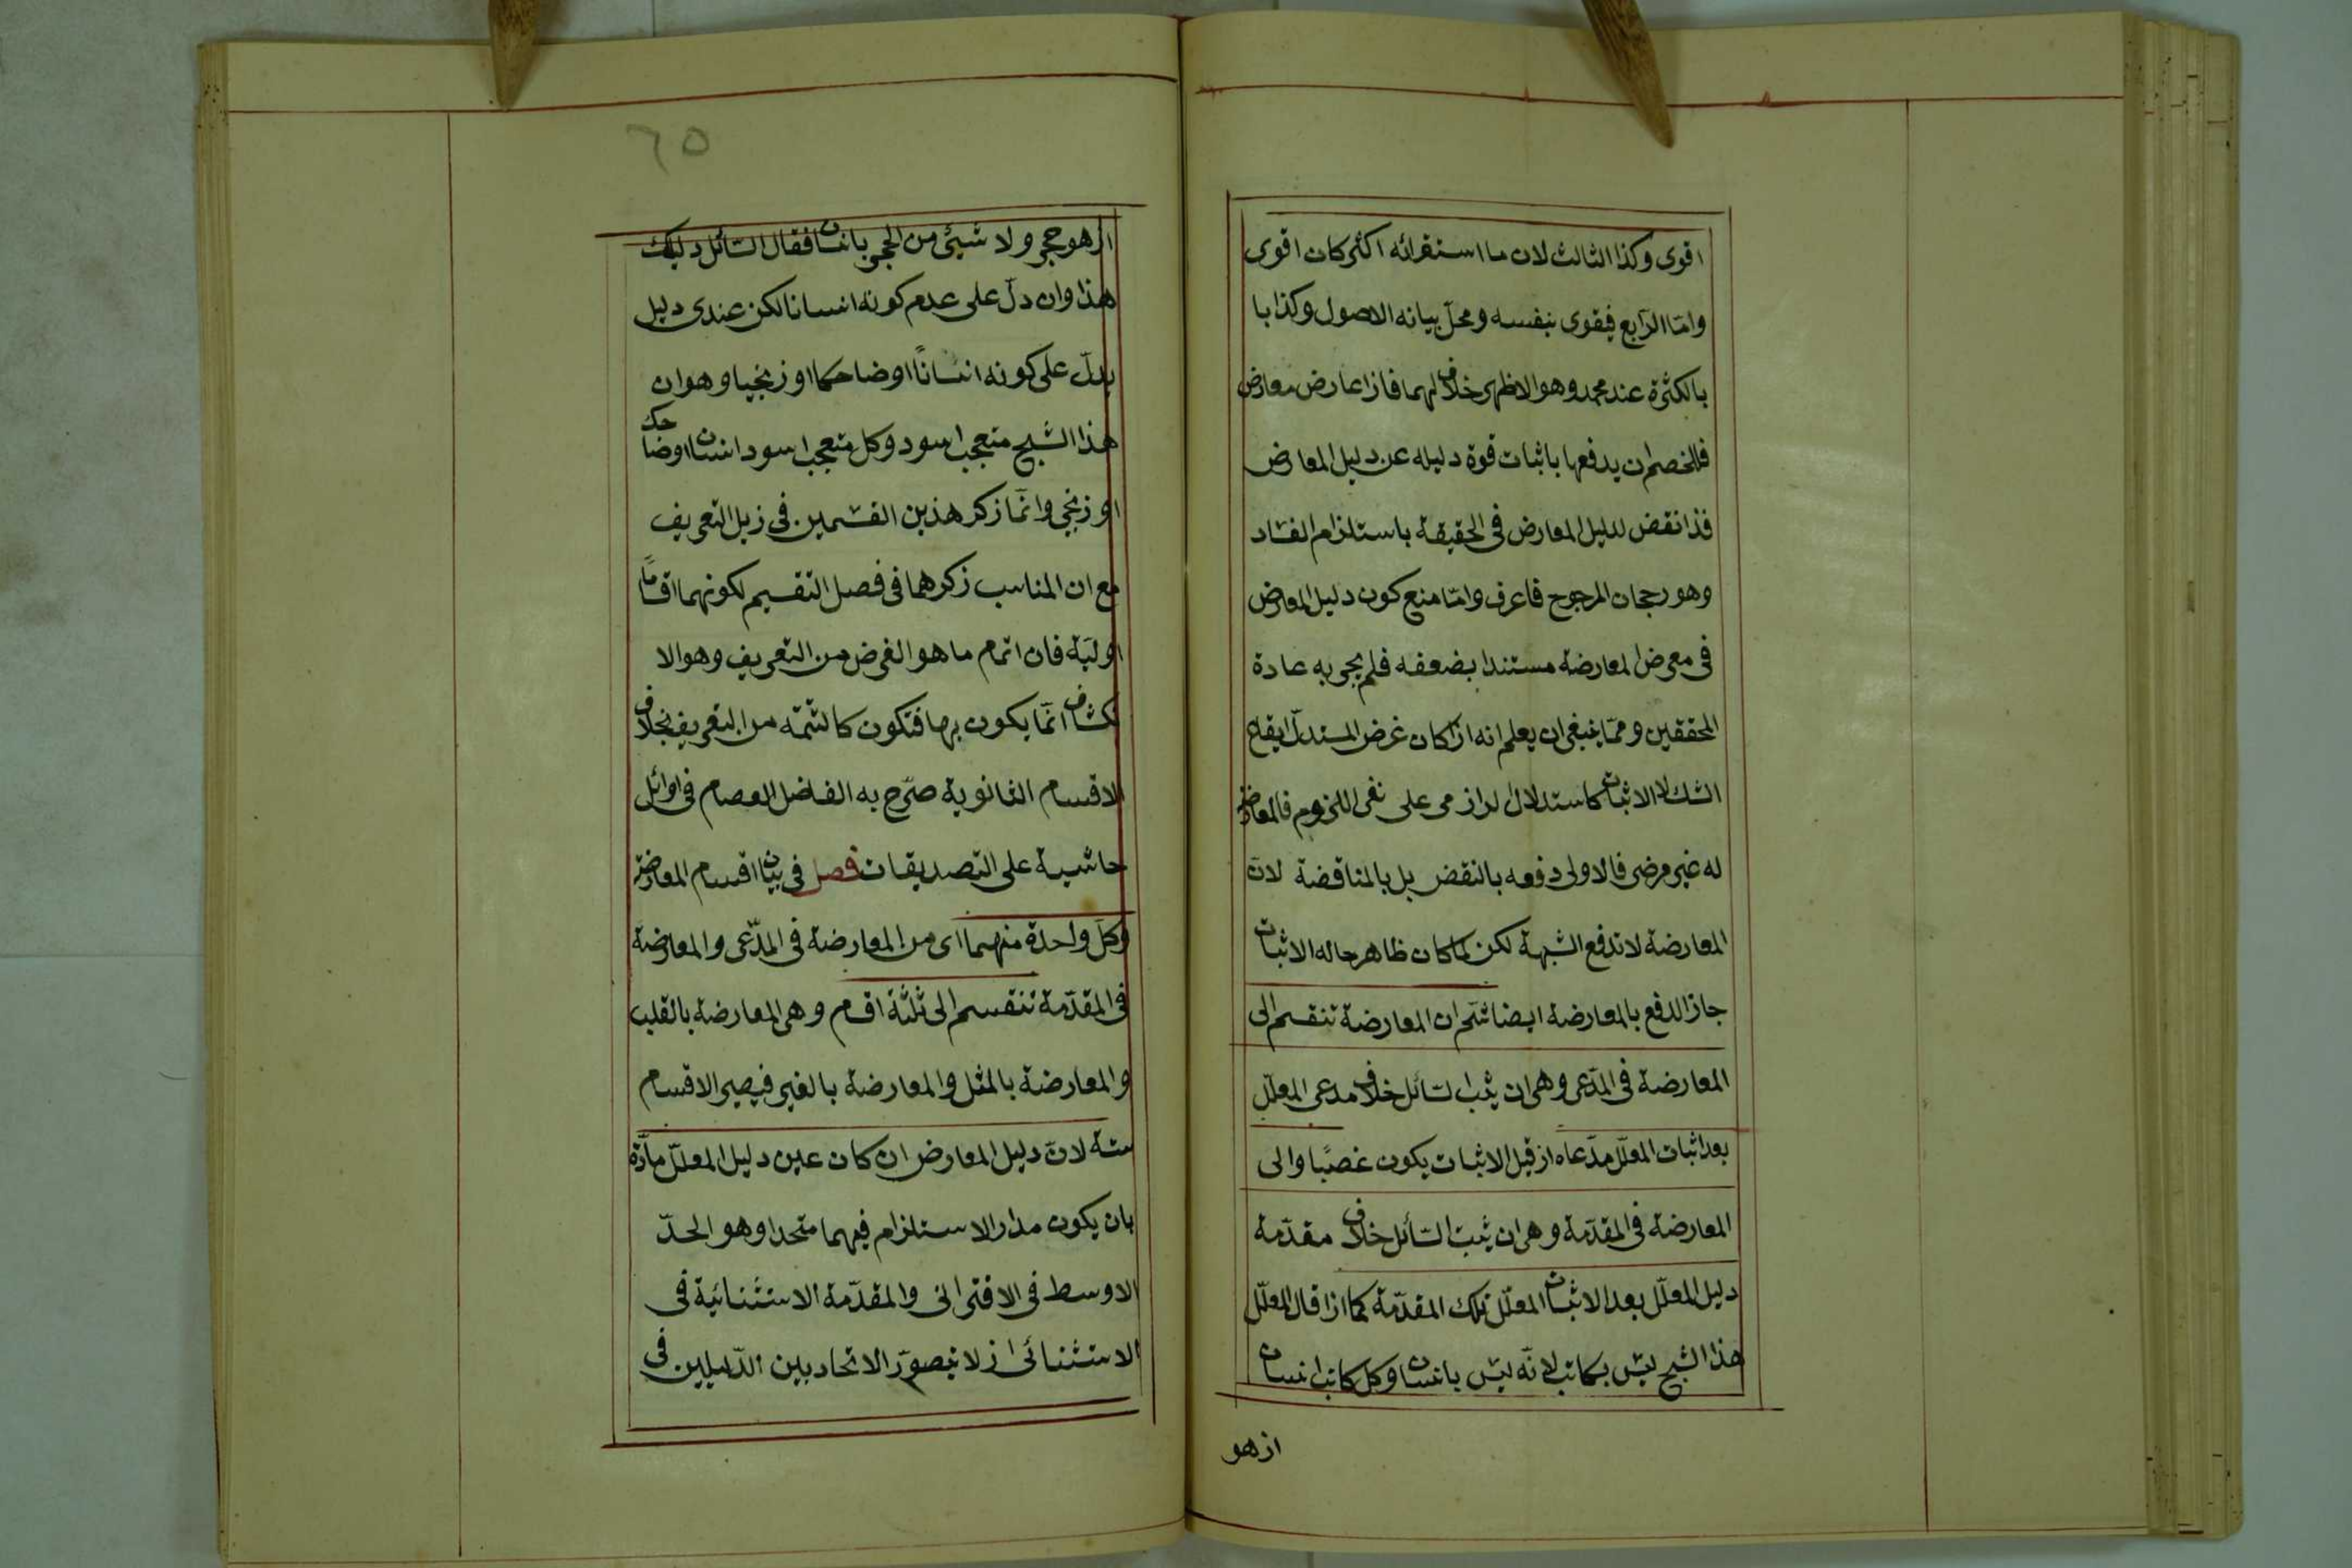 اقوى وكذا الثالث لان ما استقرائه اكثر كان اقوى
وامّا الرّابع فيقوى بنفسه ومحلّ بيانه الاصول وكذا با
بالكثرة عند محمد وهو الاظهر خلافا لهما فاذا عارض معارض
فللخصم ان يدفعها باثبات قوة دليله عن دليل المعارض
فذا نقض لدليل المعارض فى الحقيقة باستلزام الفساد
وهو رجحان المرجوح فاعرف وامّا منع كون دليل المعارض
فى معرض المعارضة مستندا بضعفه فلم يجر به عادة
المحققين وممّا ينبغى ان يعلم انه اذا كان غرض المستدلّ ايقاع
الشك لا الاثبات كاستدلال الرازى على نفى اللزوم فالمعارضة
له غير مرضى فالاولى دفعه بالنقض بل بالمناقضة لانّ
المعارضة لا تدفع الشبهة لكن لما كان ظاهر حاله الاثبات
جاز الدفع بالمعارضة ايضا ثم ان المعارضة تنقسم الى
المعارضة فى المدّعى وهى ان يثبت السائل خلاف مدعى المعلّل
بعد اثبات المعلّل مدّعاه اذ قبل الاثبات يكون غصبًا والى
المعارضة فى المقدّمة وهى ان يثبت السائل خلاف مقدّمة
دليل المعلّل بعد الاثبات المعلّل تلك المقدّمة كما اذا قال المعلّل
هذا الشبح ليس بكاتب لانّه ليس بانسان وكل كاتب انسان
اذ هو
٦٥
اذ هو حجر ولا شيئ من الحجر بانسان فقال السّائل دليلك
هذا وان دلّ على عدم كونه انسانا لكن عندى دليل
يدلّ على كونه انسانًا او ضاحكا او زنجيا وهو ان
هذا الشبح متعجب اسود وكل متعجب اسود انسان او ضاحك
او زنجى وانّما ذكر هذين القسمين فى ذيل التعريف
مع ان المناسب ذكرهما فى فصل التقسيم لكونهما اقسامًا
اوليّة فان اتمام ما هو الغرض من التعريف وهو الا
نكشاف انّما يكون بها فتكون كالتتمّة من التعريف بخلاف
الاقسام الثانوية صرّح به الفاضل العصام فى اوائل
حاشية على التصديقات فصل فى بيان اقسام المعارضة
وكلّ واحدة منهما اى من المعارضة فى المدّعى والمعارضة
فى المقدّمة تنقسم الى ثلثة اقسام وهى المعارضة بالقلب
والمعارضة بالمثل والمعارضة بالغير فيصير الاقسام
ستة لانّ دليل المعارض ان كان عين دليل المعلّل مادّة
بان يكون مدار الاستلزام فيهما متحدا وهو الحدّ
الاوسط فى الاقترانى والمقدّمة الاستثنائية فى
الاستثنائى اذ لا يتصوّر الاتحاد بين الدّليلين فى